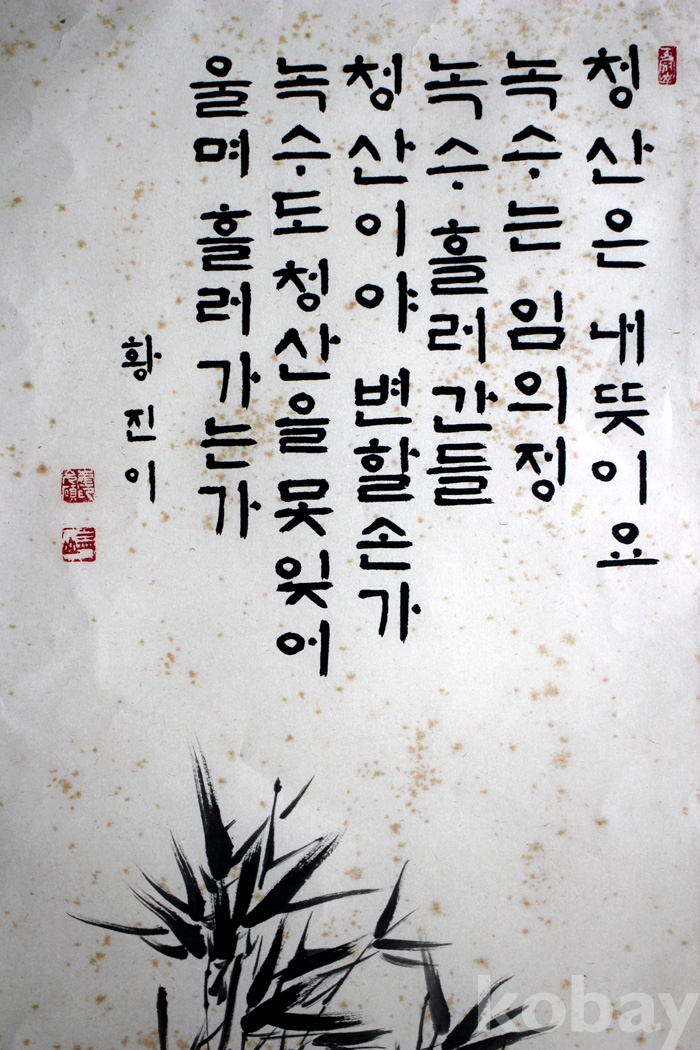 청산은 내뜻이요
녹수는 임의정
녹수 흘러간들
청산이야 변할손가
녹수도 청산을 못잊어
울며 흘러가는가
황진이
kobay